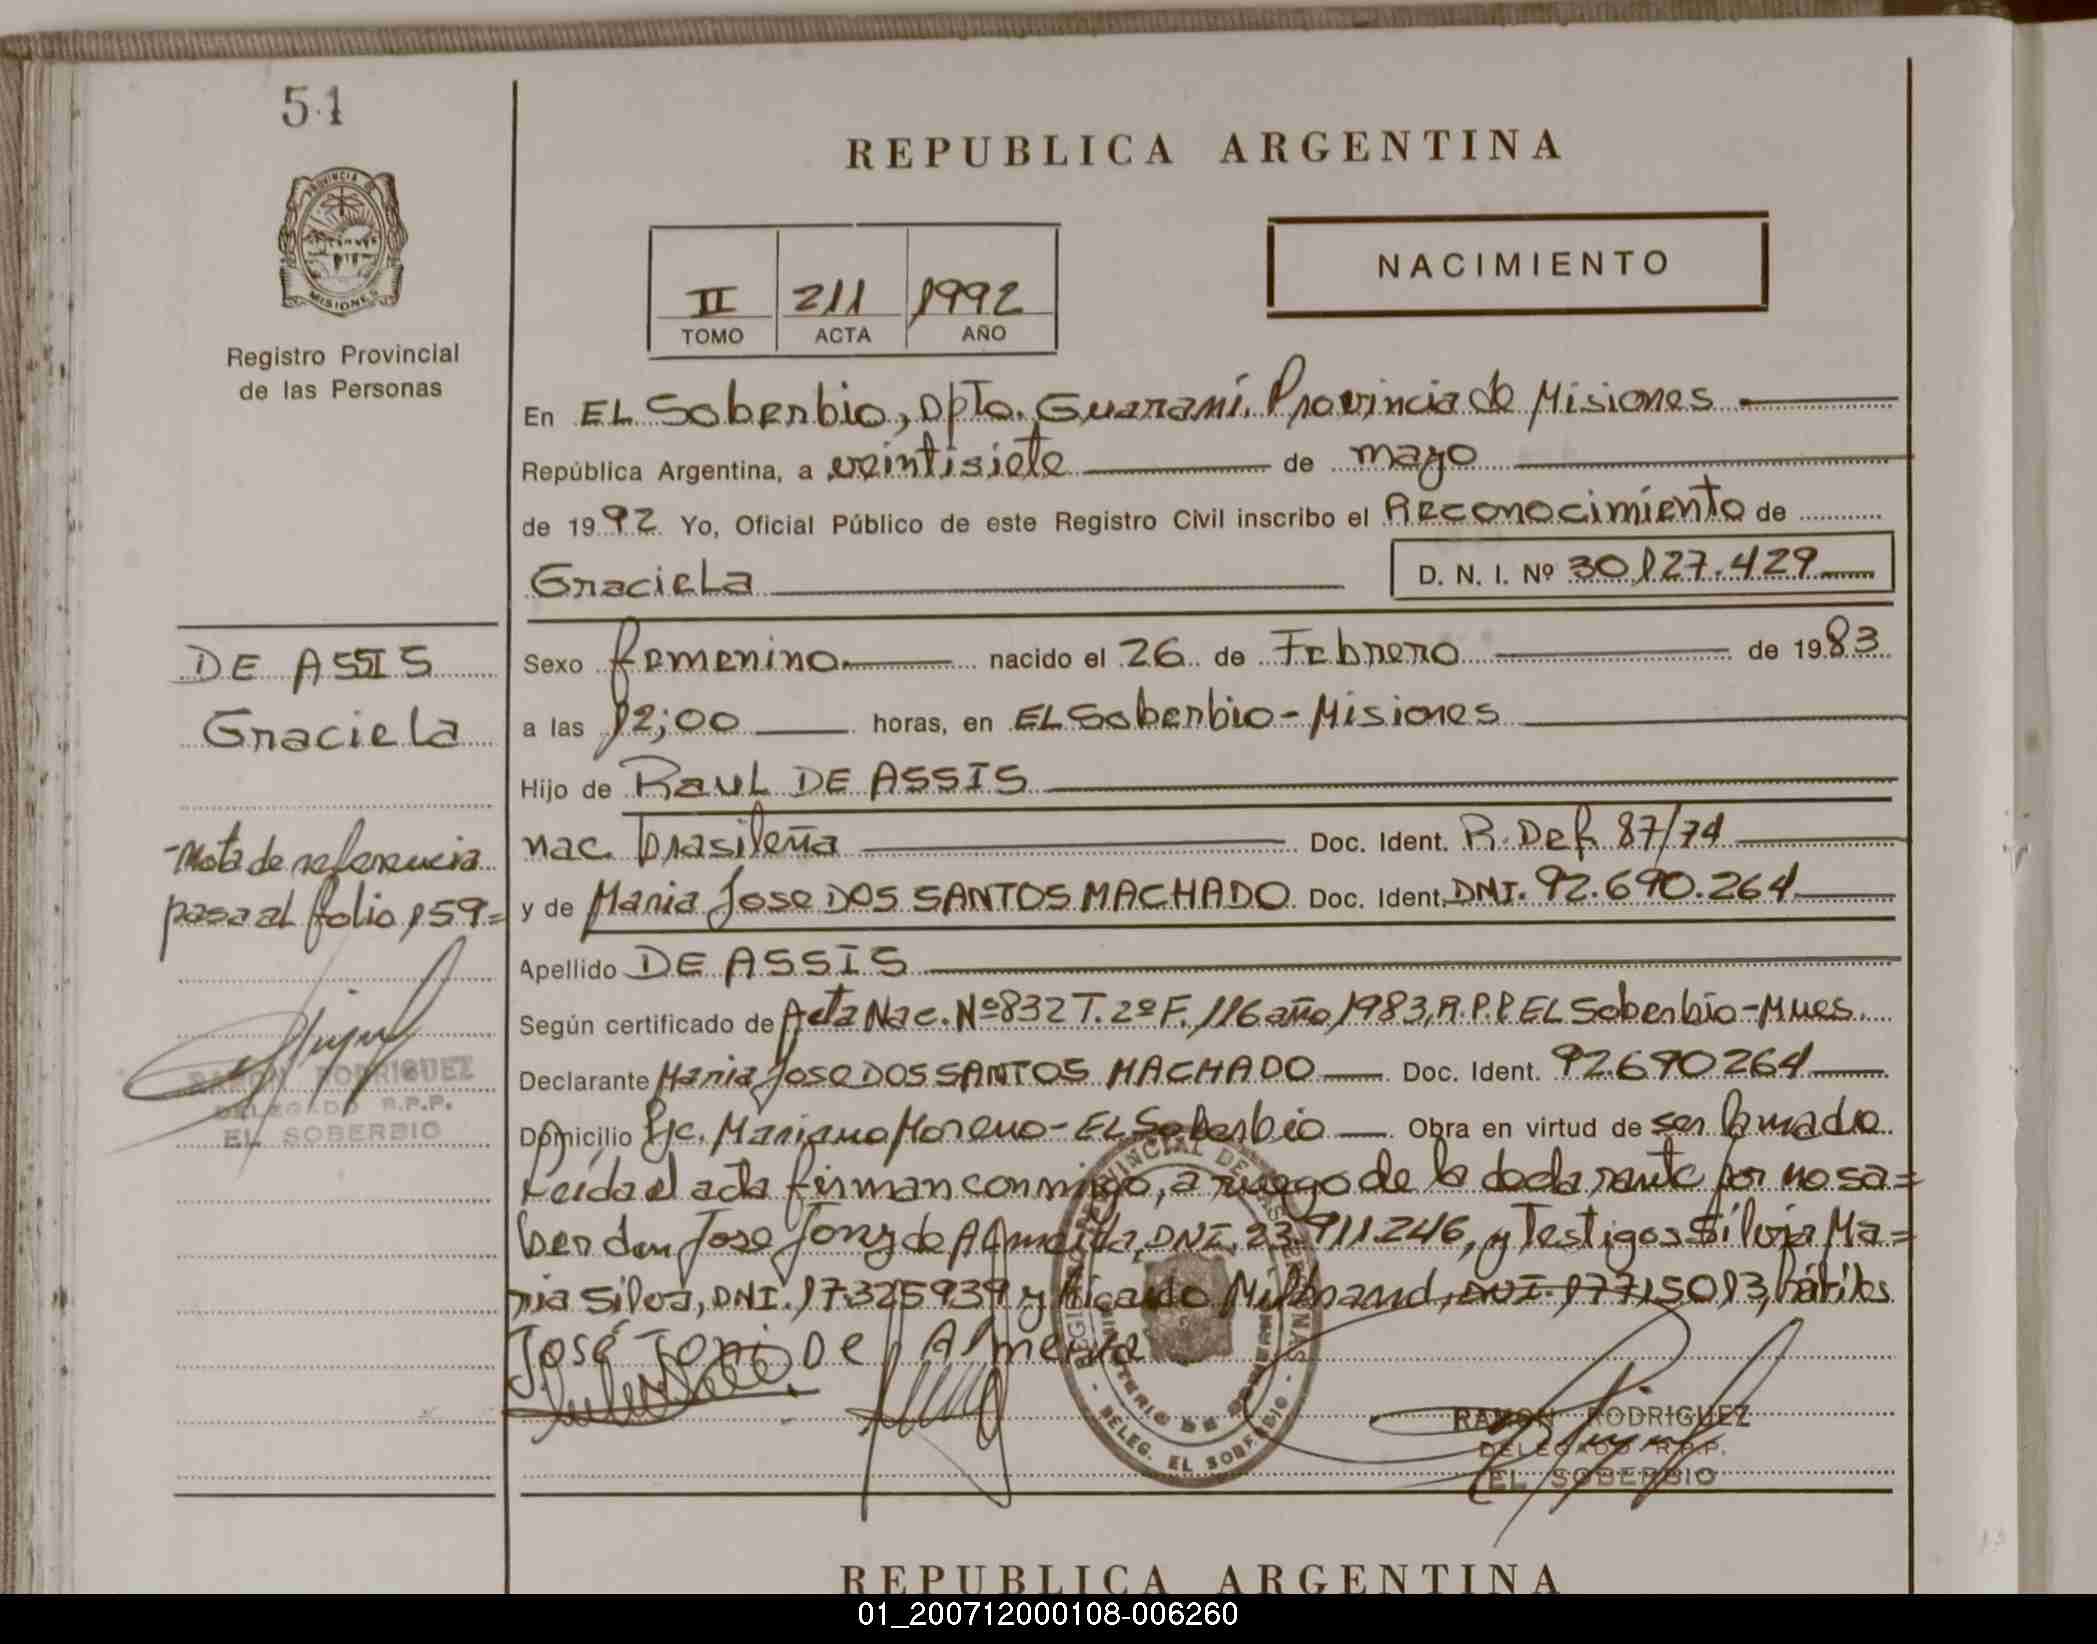 51
PROVINCIA DE
MISIONES
Registro Provincial
de las Personas
REPUBLICA ARGENTINA
II 211 1992
TOMO ACTA AÑO
NACIMIENTO
En EL Soberbio, Dpto. Guaraní, Provincia de Misiones
República Argentina, a veintisiete de mayo
de 1992 Yo, Oficial Público de este Registro Civil inscribo el Reconocimiento de
Graciela D. N. I. Nº 30.127.429
Sexo femenino nacido el 26 de Febrero de 1983
a las 12;00 horas, en EL Soberbio - Misiones
Hijo de Raul DE ASSIS
nac. brasileña Doc. Ident. R. Def. 87/74
y de Maria Jose DOS SANTOS MACHADO Doc. Ident. DNI. 92.690.264
Apellido DE ASSIS
Según certificado de Acta Nac. Nº 832 T. 2º F. 116 año 1983, R.P.P. EL Soberbio - Mnes.
Declarante Maria Jose DOS SANTOS MACHADO Doc. Ident. 92.690264
Domicilio Pje. Mariano Moreno - EL Soberbio Obra en virtud de ser la madre
Leida el acta firman conmigo, a ruego de la declarante por no sa=
ber don Jose Jony de Almeida, DNI. 23.911.246, y Testigos Silvia Ma=
ria Silva, DNI. 17325939 y Ricardo Milbrand, DNI. 17715013, hábiles
José Toni De Almeida
DE ASSIS
Graciela
-Nota de referencia
pasa al folio 159=
RAMON RODRIGUEZ
DELEGADO R.P.P.
EL SOBERBIO
MINISTERIO DE GOBIERNO
DELEG. EL SOBERBIO
RAMON RODRIGUEZ
DELEGADO R.P.P.
EL SOBERBIO
REPUBLICA ARGENTINA
01_200712000108-006260